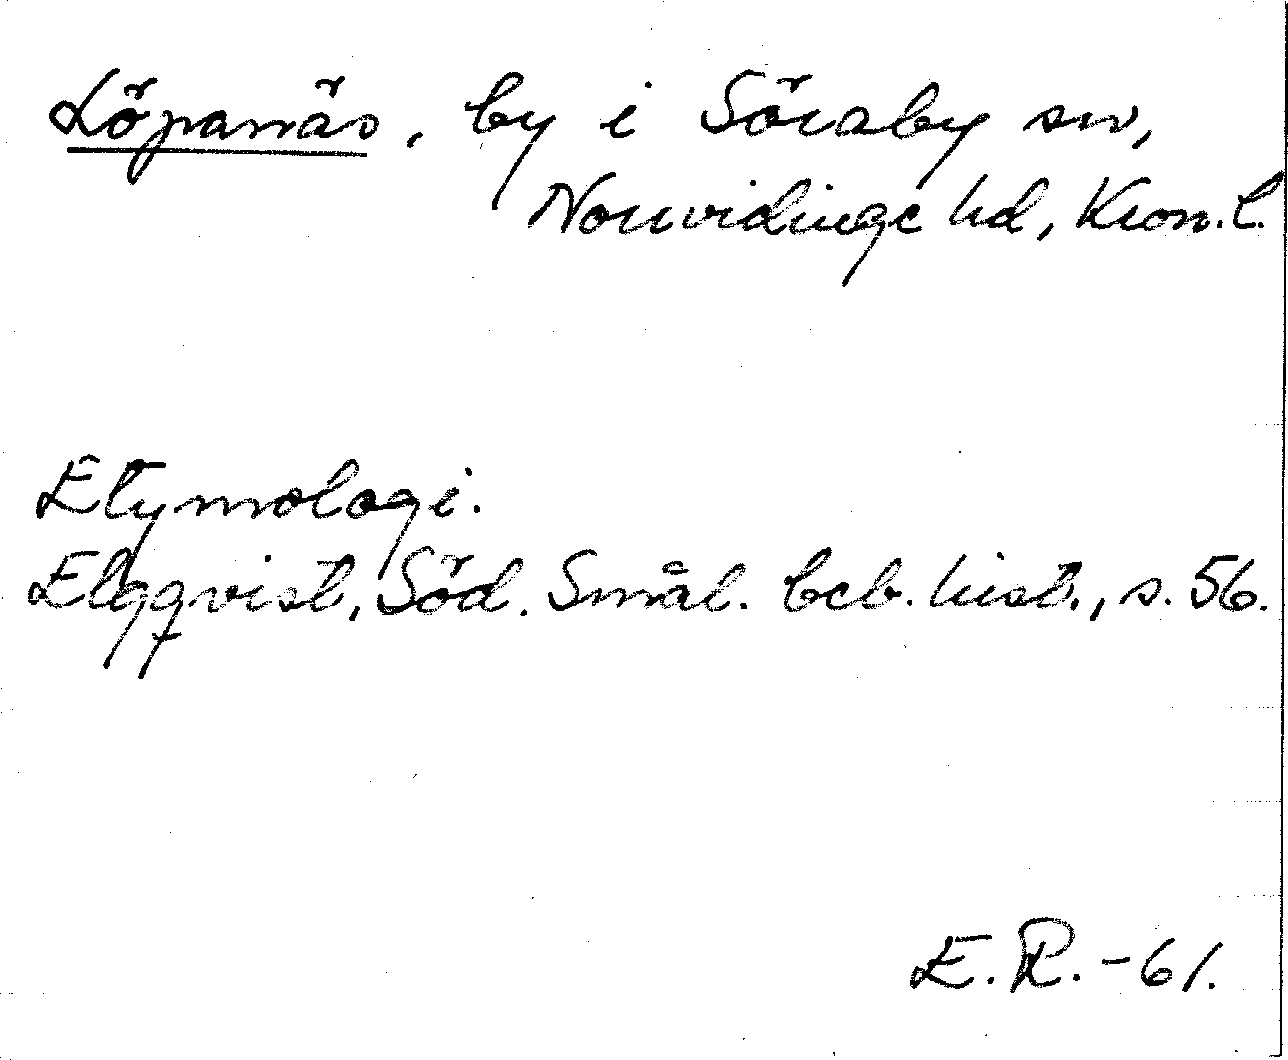 Löpanäs, by i Söraby sn,
Norrvidinge hd, Kron.l.
Etymologi.
Elgqvist, Söd. Smål. beb. hist., s. 56.
E.R.-61.